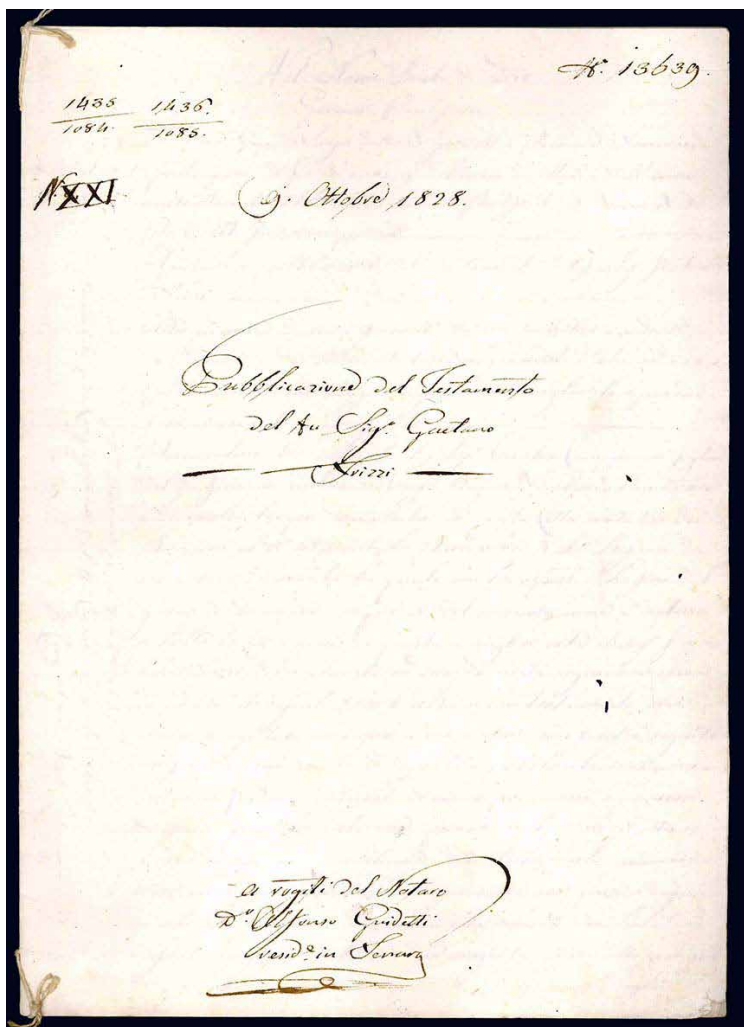 N.° 13639.
1435 1436.
1084. 1085.
N. XXI
9. Ottobre 1828.
Pubblicazione del Testamento
del fu Sig.r Gaetano
Frizzi
a rogiti del Notaro
D.r Alfonso Guidetti
resid.e in Ferrara